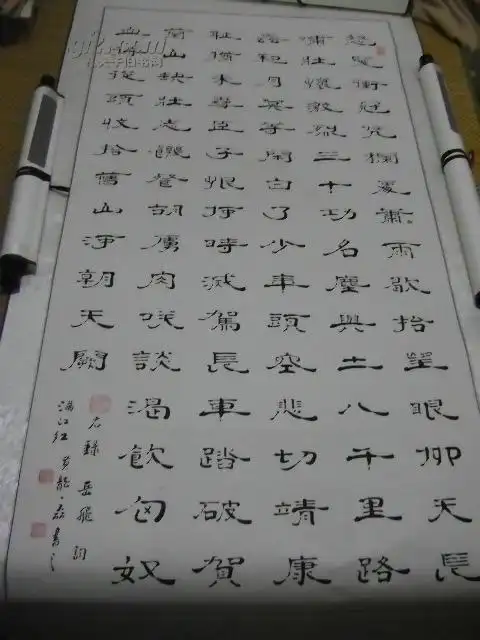 怒髮衝冠凭欄處蕭雨歇抬望眼仰天長
嘯壯懷激烈三十功名塵與土八千里路
雲和月莫等閑白了少年頭空悲切靖康
恥猶未雪臣子恨何時滅駕長車踏破賀
蘭山缺壯志饑餐胡虜肉笑談渴飲匈奴
血待從頭收拾舊山河朝天闕
右錄岳飛詞
滿江紅 書之